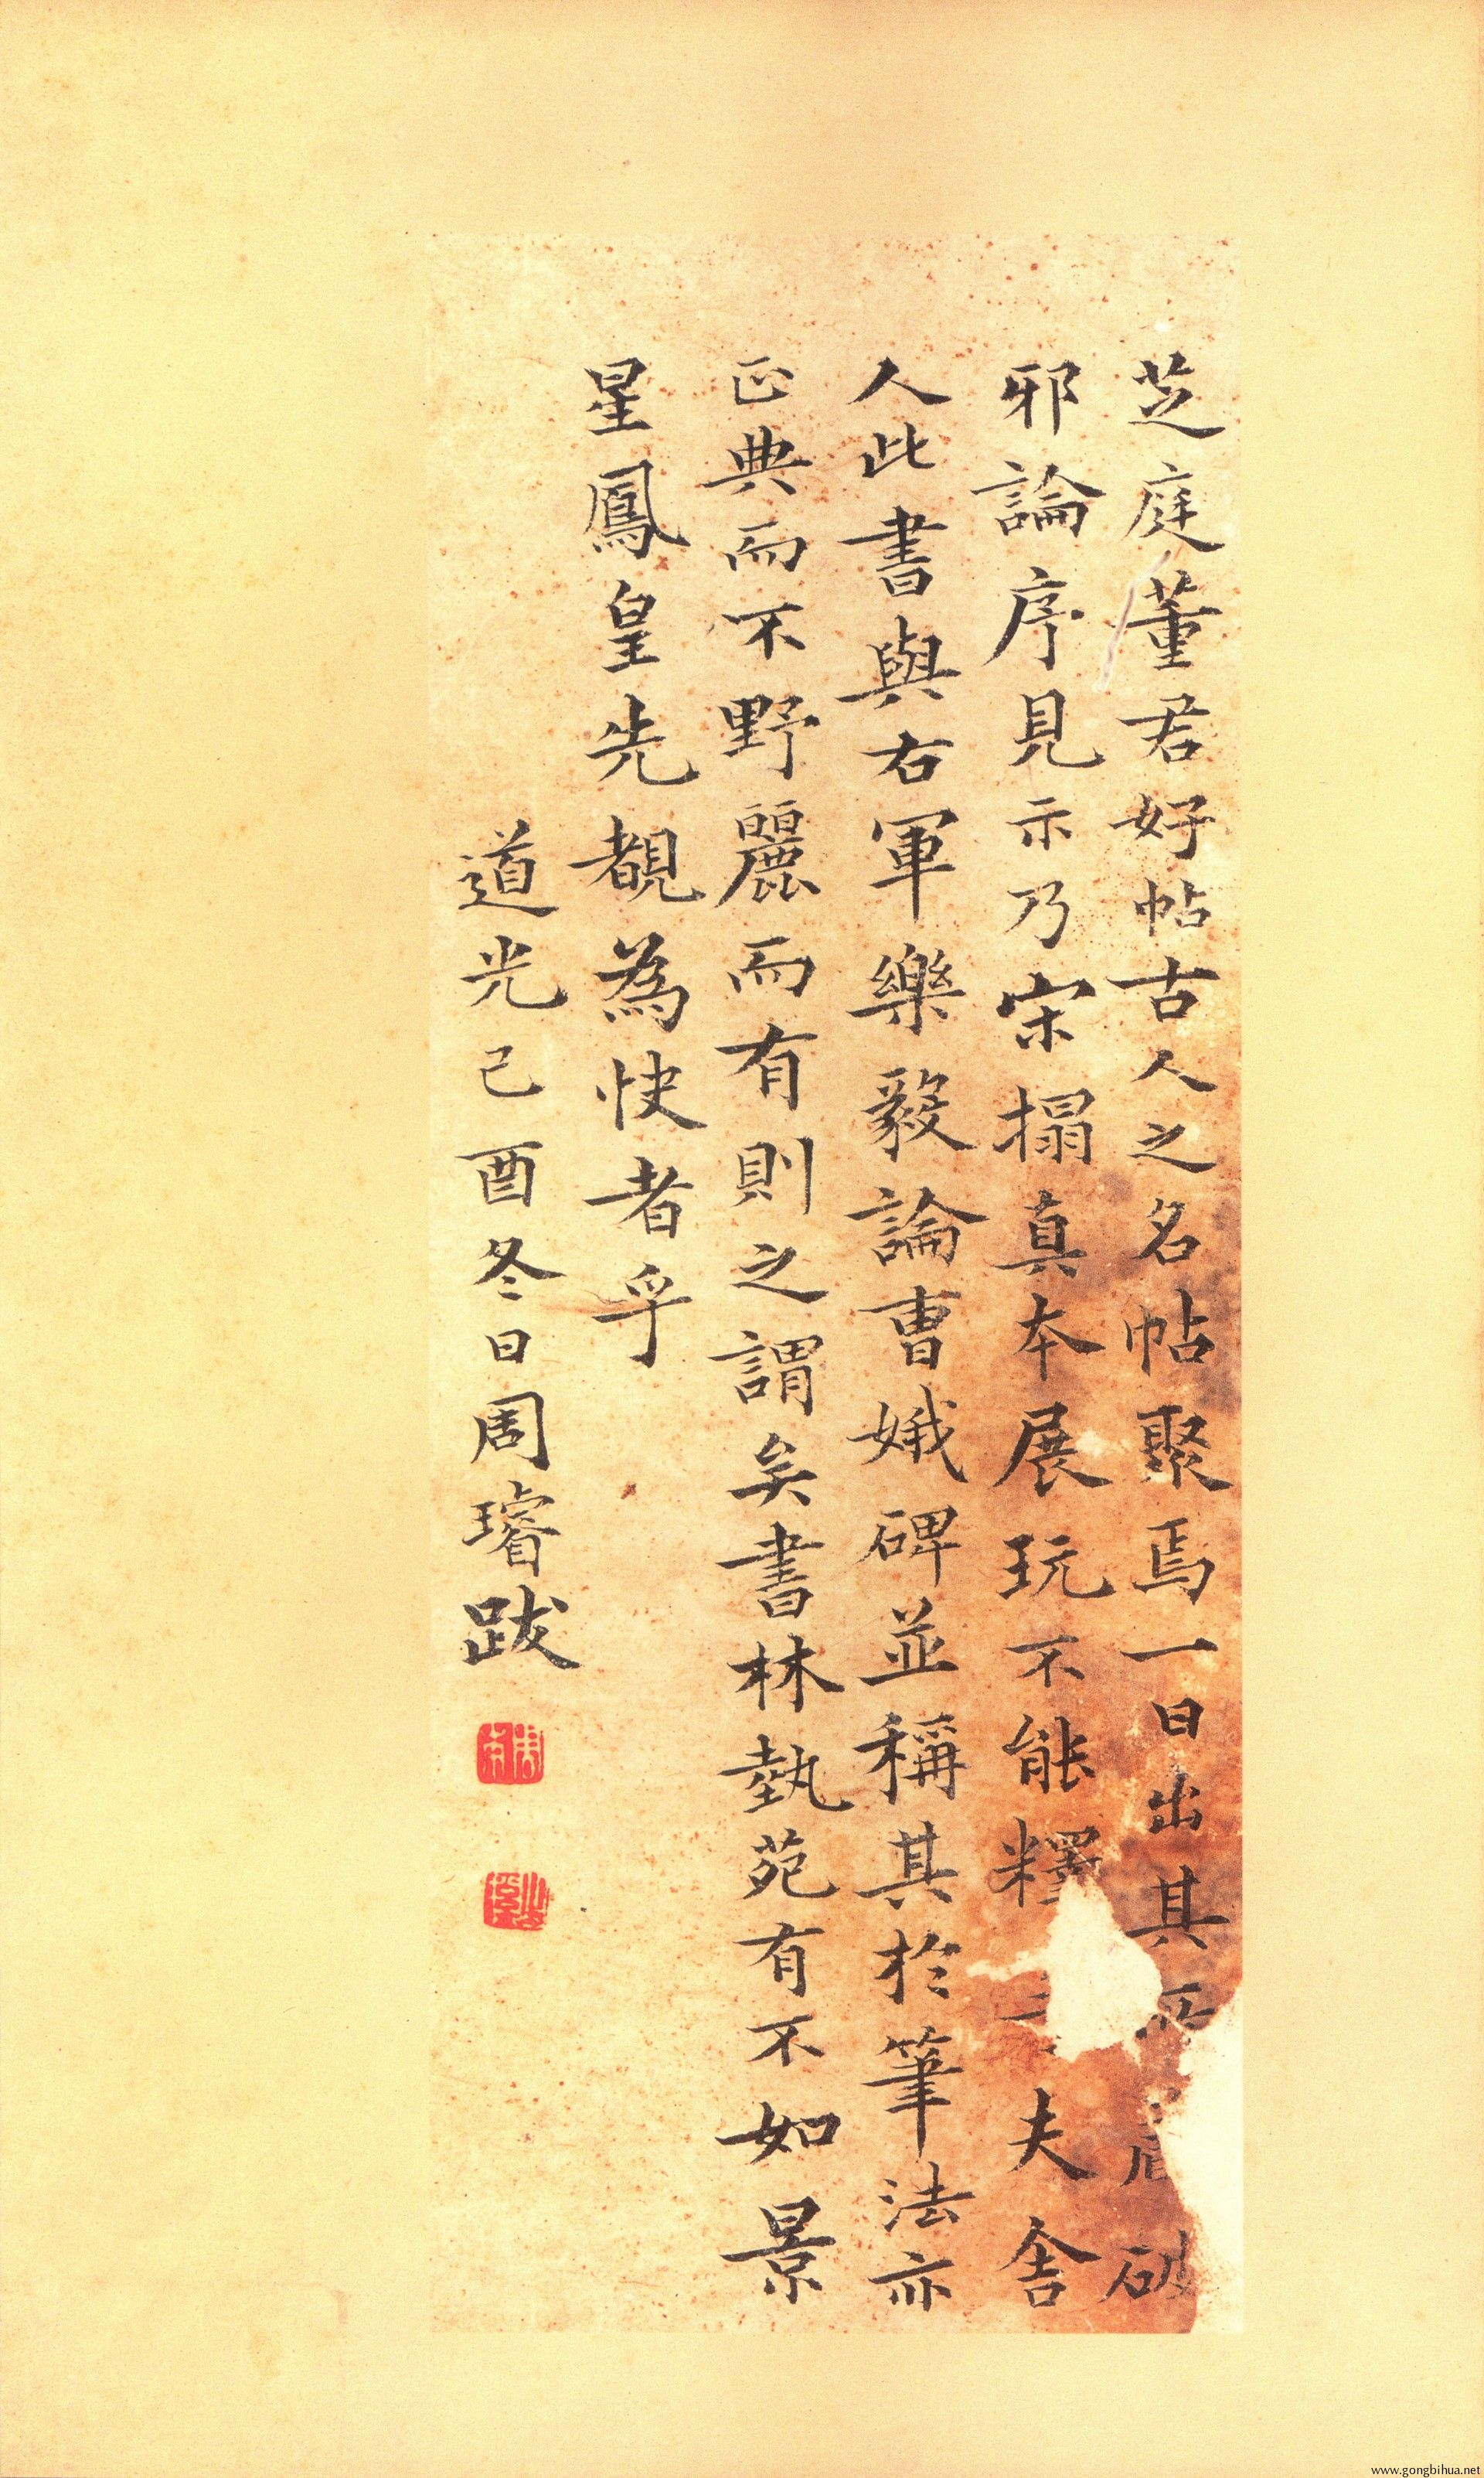 芝庭董君好帖古人之名帖聚焉一日出其所破
邪論序見示乃宋搨真本展玩不能釋手夫舍
人此書與右軍樂毅論曹娥碑並稱其於筆法亦
正典而不野麗而有則之謂矣書林執苑有不如景
星鳳皇先覩為快者乎
道光己酉冬日周璿跋
www.gongbihua.net